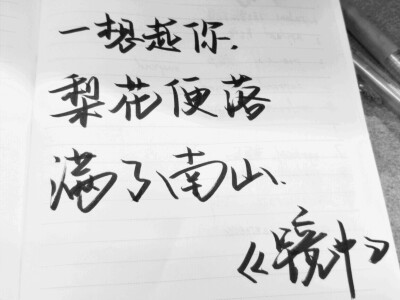 一想起你.
梨花便落
满了南山.
《镜中》